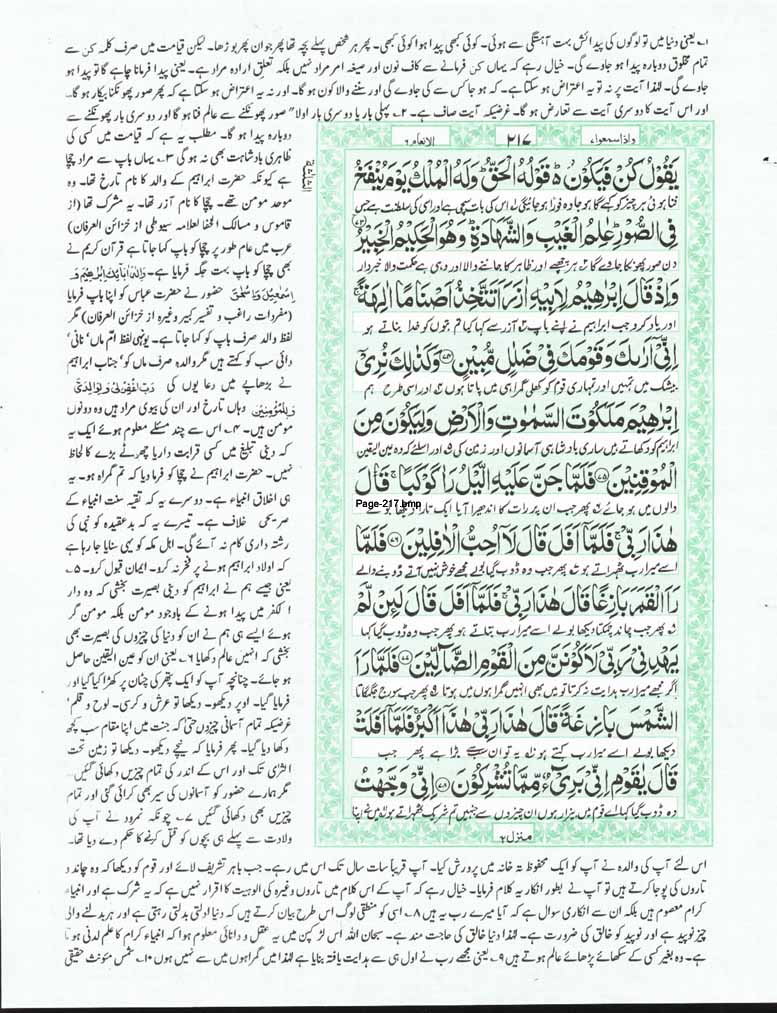 ۱؎ یعنی دنیا میں تو لوگوں کی پیدائش بہت آہستگی سے ہوئی۔ کوئی کبھی پیدا ہوا کوئی کبھی۔ پھر ہر شخص پہلے بچہ تھا پھر جوان پھر بوڑھا۔ لیکن قیامت میں صرف کلمہ کن سے
تمام مخلوق دوبارہ پیدا ہو جاوے گی۔ خیال رہے کہ یہاں کن فرمانے سے کاف نون اور صیغہ امر مراد نہیں بلکہ تعلق ارادہ مراد ہے۔ یعنی پیدا فرمانا چاہے گا تو پیدا ہو
جاوے گی۔ لہٰذا آیت پر نہ تو یہ اعتراض ہو سکتا ہے۔ کہ ہو جا کس سے کی جاوے گی اور سننے والا کون ہو گا۔ اور نہ یہ اعتراض ہو سکتا ہے کہ پھر صور پھونکنا بیکار ہو گا۔
اور اس آیت کا دوسری آیت سے تعارض ہو گا۔ غرضیکہ آیت صاف ہے۔ ۲؎ پہلی بار یا دوسری بار اولاً صور پھونکنے سے عالم فنا ہو گا اور دوسری بار پھونکنے سے
دوبارہ پیدا ہو گا۔ مطلب یہ ہے کہ قیامت میں کسی کی
ظاہری بادشاہت بھی نہ ہو گی ۳؎ یہاں باپ سے مراد چچا
ہے کیونکہ حضرت ابراہیم کے والد کا نام تارخ تھا۔ وہ
موحد مومن تھے۔ چچا کا نام آزر تھا۔ یہ مشرک تھا (از
قاموس و مسالک الحنفا لعلامہ سیوطی از خزائن العرفان)
عرب میں عام طور پر چچا کو باپ کہا جاتا ہے قرآن کریم نے
بھی چچا کو باپ بہت جگہ فرمایا ہے۔ وَاِلٰهَ اٰبَآئِكَ اِبْرٰهِيْمَ وَ
اِسْمٰعِيْلَ وَاِسْحٰقَ حضور نے حضرت عباس کو اپنا باپ فرمایا
(مفردات راغب و تفسیر کبیر وغیرہ از خزائن العرفان) مگر
لفظ والد صرف باپ کو کہا جاتا ہے۔ یونہی لفظ ام ماں' نانی'
دائی سب کو کہتے ہیں مگر والدہ صرف ماں کو' جناب ابراہیم
نے بڑھاپے میں دعا یوں کی رَبِّ اغْفِرْ لِىْ وَلِوَالِدَىَّ
وَلِلْمُؤْمِنِيْنَ وہاں تارخ اور ان کی بیوی مراد ہیں وہ دونوں
مومن ہیں۔ ۴؎ اس سے چند مسئلے معلوم ہوئے ایک یہ
کہ دینی تبلیغ میں کسی قرابت دار یا چھوٹے بڑے کا لحاظ
نہیں۔ حضرت ابراہیم نے چچا کو فرما دیا کہ تم گمراہ ہو۔ یہ
ہی اخلاق انبیاء ہے۔ دوسرے یہ کہ تقیہ سنت انبیاء کے
صریحی خلاف ہے۔ تیسرے یہ کہ بدعقیدہ کو نبی کی
رشتہ داری کام نہ آئے گی۔ اہل مکہ کو یہی سنایا جا رہا ہے
کہ اولاد ابراہیم ہونے پر فخر نہ کرو۔ ایمان قبول کرو۔ ۵؎
یعنی جیسے ہم نے ابراہیم کو دینی بصیرت بخشی کہ وہ دار
الکفر میں پیدا ہونے کے باوجود مومن بلکہ مومن گر
ہوئے ایسے ہی ہم نے ان کو دنیا کی چیزوں کی بصیرت بھی
بخشی کہ انہیں عالم دکھایا ۶؎ یعنی ان کو عین الیقین حاصل
ہو جائے۔ چنانچہ آپ کو ایک پتھر کی چٹان پر کھڑا کیا گیا اور
فرمایا گیا۔ اوپر دیکھو۔ دیکھا تو عرش و کرسی۔ لوح و قلم'
غرضیکہ تمام آسمانی چیزیں حتیٰ کہ جنت میں اپنا مقام سب کچھ
دکھا دیا گیا۔ پھر فرمایا کہ نیچے دیکھو۔ دیکھا تو زمین تحت
الثریٰ تک اور اس کے اندر کی تمام چیزیں دکھائی گئیں۔
مگر ہمارے حضور کو آسمانوں کی سیر بھی کرائی گئی اور تمام
چیزیں بھی دکھائی گئیں ۷؎ چونکہ نمرود نے آپ کی
ولادت سے پہلے ہی بچوں کو قتل کرنے کا حکم دے دیا تھا۔
واذاسمعواء
۲۱۷
الانعام ۶
يَقُوْلُ كُنْ فَيَكُوْنُ ؕ قَوْلُهُ الْحَقُّ ؕ وَلَهُ الْمُلْكُ يَوْمَ يُنْفَخُ
فنا ہوئی ہر چیز کو کہے گا ہو جا وہ فوراً ہو جائیگی اس کی بات سچی ہے اور اسی کی سلطنت ہے جس
فِى الصُّوْرِ ؕ عٰلِمُ الْغَيْبِ وَالشَّهَادَةِ ؕ وَهُوَ الْحَكِيْمُ الْخَبِيْرُ
دن صور پھونکا جاوے گا ہر چھپے اور ظاہر کا جاننے والا اور وہی ہے حکمت والا خبردار
وَاِذْ قَالَ اِبْرٰهِيْمُ لِاَبِيْهِ اٰزَرَ اَتَتَّخِذُ اَصْنَامًا اٰلِهَةً ۚ
اور یاد کرو جب ابراہیم نے اپنے باپ آزر سے کہا کیا تم بتوں کو خدا بناتے ہو
اِنِّىْۤ اَرٰىكَ وَقَوْمَكَ فِىْ ضَلٰلٍ مُّبِيْنٍ ﴿۷۴﴾ وَكَذٰلِكَ نُرِىْۤ
بیشک میں تمہیں اور تمہاری قوم کو کھلی گمراہی میں پاتا ہوں اور اسی طرح ہم
اِبْرٰهِيْمَ مَلَكُوْتَ السَّمٰوٰتِ وَالْاَرْضِ وَلِيَكُوْنَ مِنَ
ابراہیم کو دکھاتے ہیں ساری بادشاہی آسمانوں اور زمین کی اور اسلئے کہ وہ عین الیقین
الْمُوْقِنِيْنَ ﴿۷۵﴾ فَلَمَّا جَنَّ عَلَيْهِ الَّيْلُ رَاٰ كَوْكَبًا ۚ قَالَ
والوں میں ہو جائے پھر جب ان پر رات کا اندھیرا آیا ایک تارا دیکھا بولے
Page-217.bmp
هٰذَا رَبِّىْ ۚ فَلَمَّاۤ اَفَلَ قَالَ لَاۤ اُحِبُّ الْاٰفِلِيْنَ ﴿۷۶﴾ فَلَمَّا
اسے میرا رب ٹھہراتے ہو پھر جب وہ ڈوب گیا بولے مجھے خوش نہیں آتے ڈوبنے والے
رَاَ الْقَمَرَ بَازِغًا قَالَ هٰذَا رَبِّىْ ۚ فَلَمَّاۤ اَفَلَ قَالَ لَئِنْ لَّمْ
پھر جب چاند چمکتا دیکھا بولے اسے میرا رب بتاتے ہو پھر جب وہ ڈوب گیا کہا
يَهْدِنِىْ رَبِّىْ لَاَكُوْنَنَّ مِنَ الْقَوْمِ الضَّآلِّيْنَ ﴿۷۷﴾ فَلَمَّا رَاَ
اگر مجھے میرا رب ہدایت نہ کرتا تو میں بھی انہیں گمراہوں میں ہوتا پھر جب سورج جگمگاتا
الشَّمْسَ بَازِغَةً قَالَ هٰذَا رَبِّىْ هٰذَاۤ اَكْبَرُ ۚ فَلَمَّاۤ اَفَلَتْ
دیکھا بولے اسے میرا رب کہتے ہو یہ تو ان سب سے بڑا ہے پھر جب
قَالَ يٰقَوْمِ اِنِّىْ بَرِىْٓءٌ مِّمَّا تُشْرِكُوْنَ ﴿۷۸﴾ اِنِّىْ وَجَّهْتُ
وہ ڈوب گیا کہا اے قوم میں بیزار ہوں ان چیزوں سے جنہیں تم شریک ٹھہراتے ہو میں نے اپنا
منزل ۲
اس لئے آپ کی والدہ نے آپ کو ایک محفوظ تہ خانہ میں پرورش کیا۔ آپ قریباً سات سال تک اس میں رہے۔ جب باہر تشریف لائے اور قوم کو دیکھا کہ وہ چاند و
تاروں کی پوجا کرتے ہیں تو آپ نے بطور انکار یہ کلام فرمایا۔ خیال رہے کہ آپ کے اس کلام میں تاروں وغیرہ کی الوہیت کا اقرار نہیں ہے کہ یہ شرک ہے اور انبیاء
کرام معصوم ہیں بلکہ ان سے انکاری سوال ہے کہ آیا میرے رب یہ ہیں ۸؎ اسی کو منطقی لوگ اس طرح بیان کرتے ہیں کہ دنیا ادلتی بدلتی رہتی ہے اور ہر بدلنے والی
چیز نوپید ہے اور نوپید کو خالق کی ضرورت ہے۔ لہٰذا دنیا خالق کی حاجت مند ہے۔ سبحان اللہ اس لڑکپن میں یہ عقل و دانائی معلوم ہوا کہ انبیاء کرام کا علم لدنی ہوتا
ہے۔ وہ بغیر کسی کے سکھائے پڑھائے عالم ہوتے ہیں ۹؎ یعنی مجھے رب نے اول ہی سے ہدایت یافتہ بنایا ہے لہٰذا میں گمراہوں میں سے نہیں ہوں ۱۰؎ شمس مؤنث حقیقی